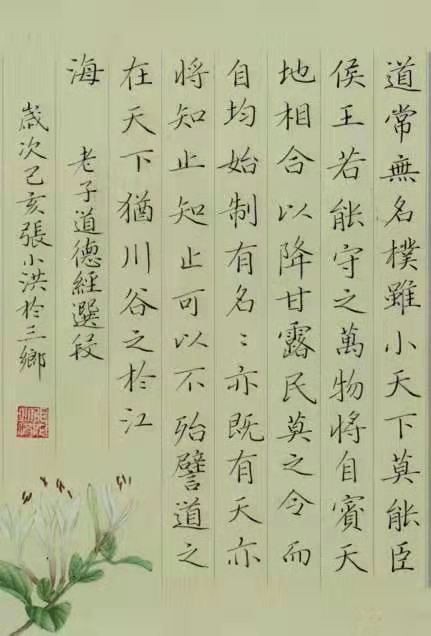 道常無名樸雖小天下莫能臣
侯王若能守之萬物将自賓天
地相合以降甘露民莫之令而
自均始制有名〻亦既有天亦
将知止知止可以不殆譬道之
在天下猶川谷之於江
海 老子道德經選段
歲次己亥張小洪於三鄉